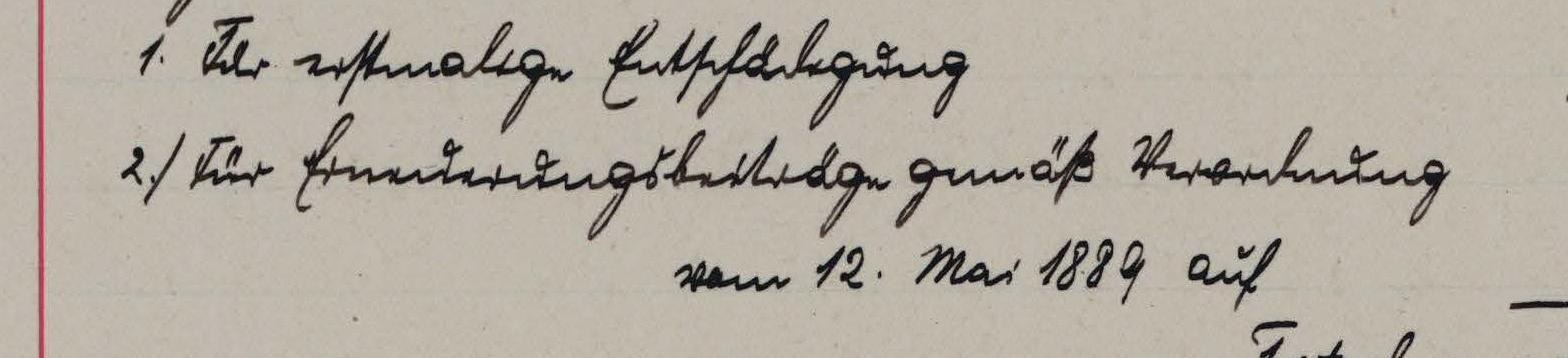 1. Für erstmalige Entschädigung
2.) Für Erneuerungsbeiträge gemäß Verordnung
vom 12. Mai 1889 auf